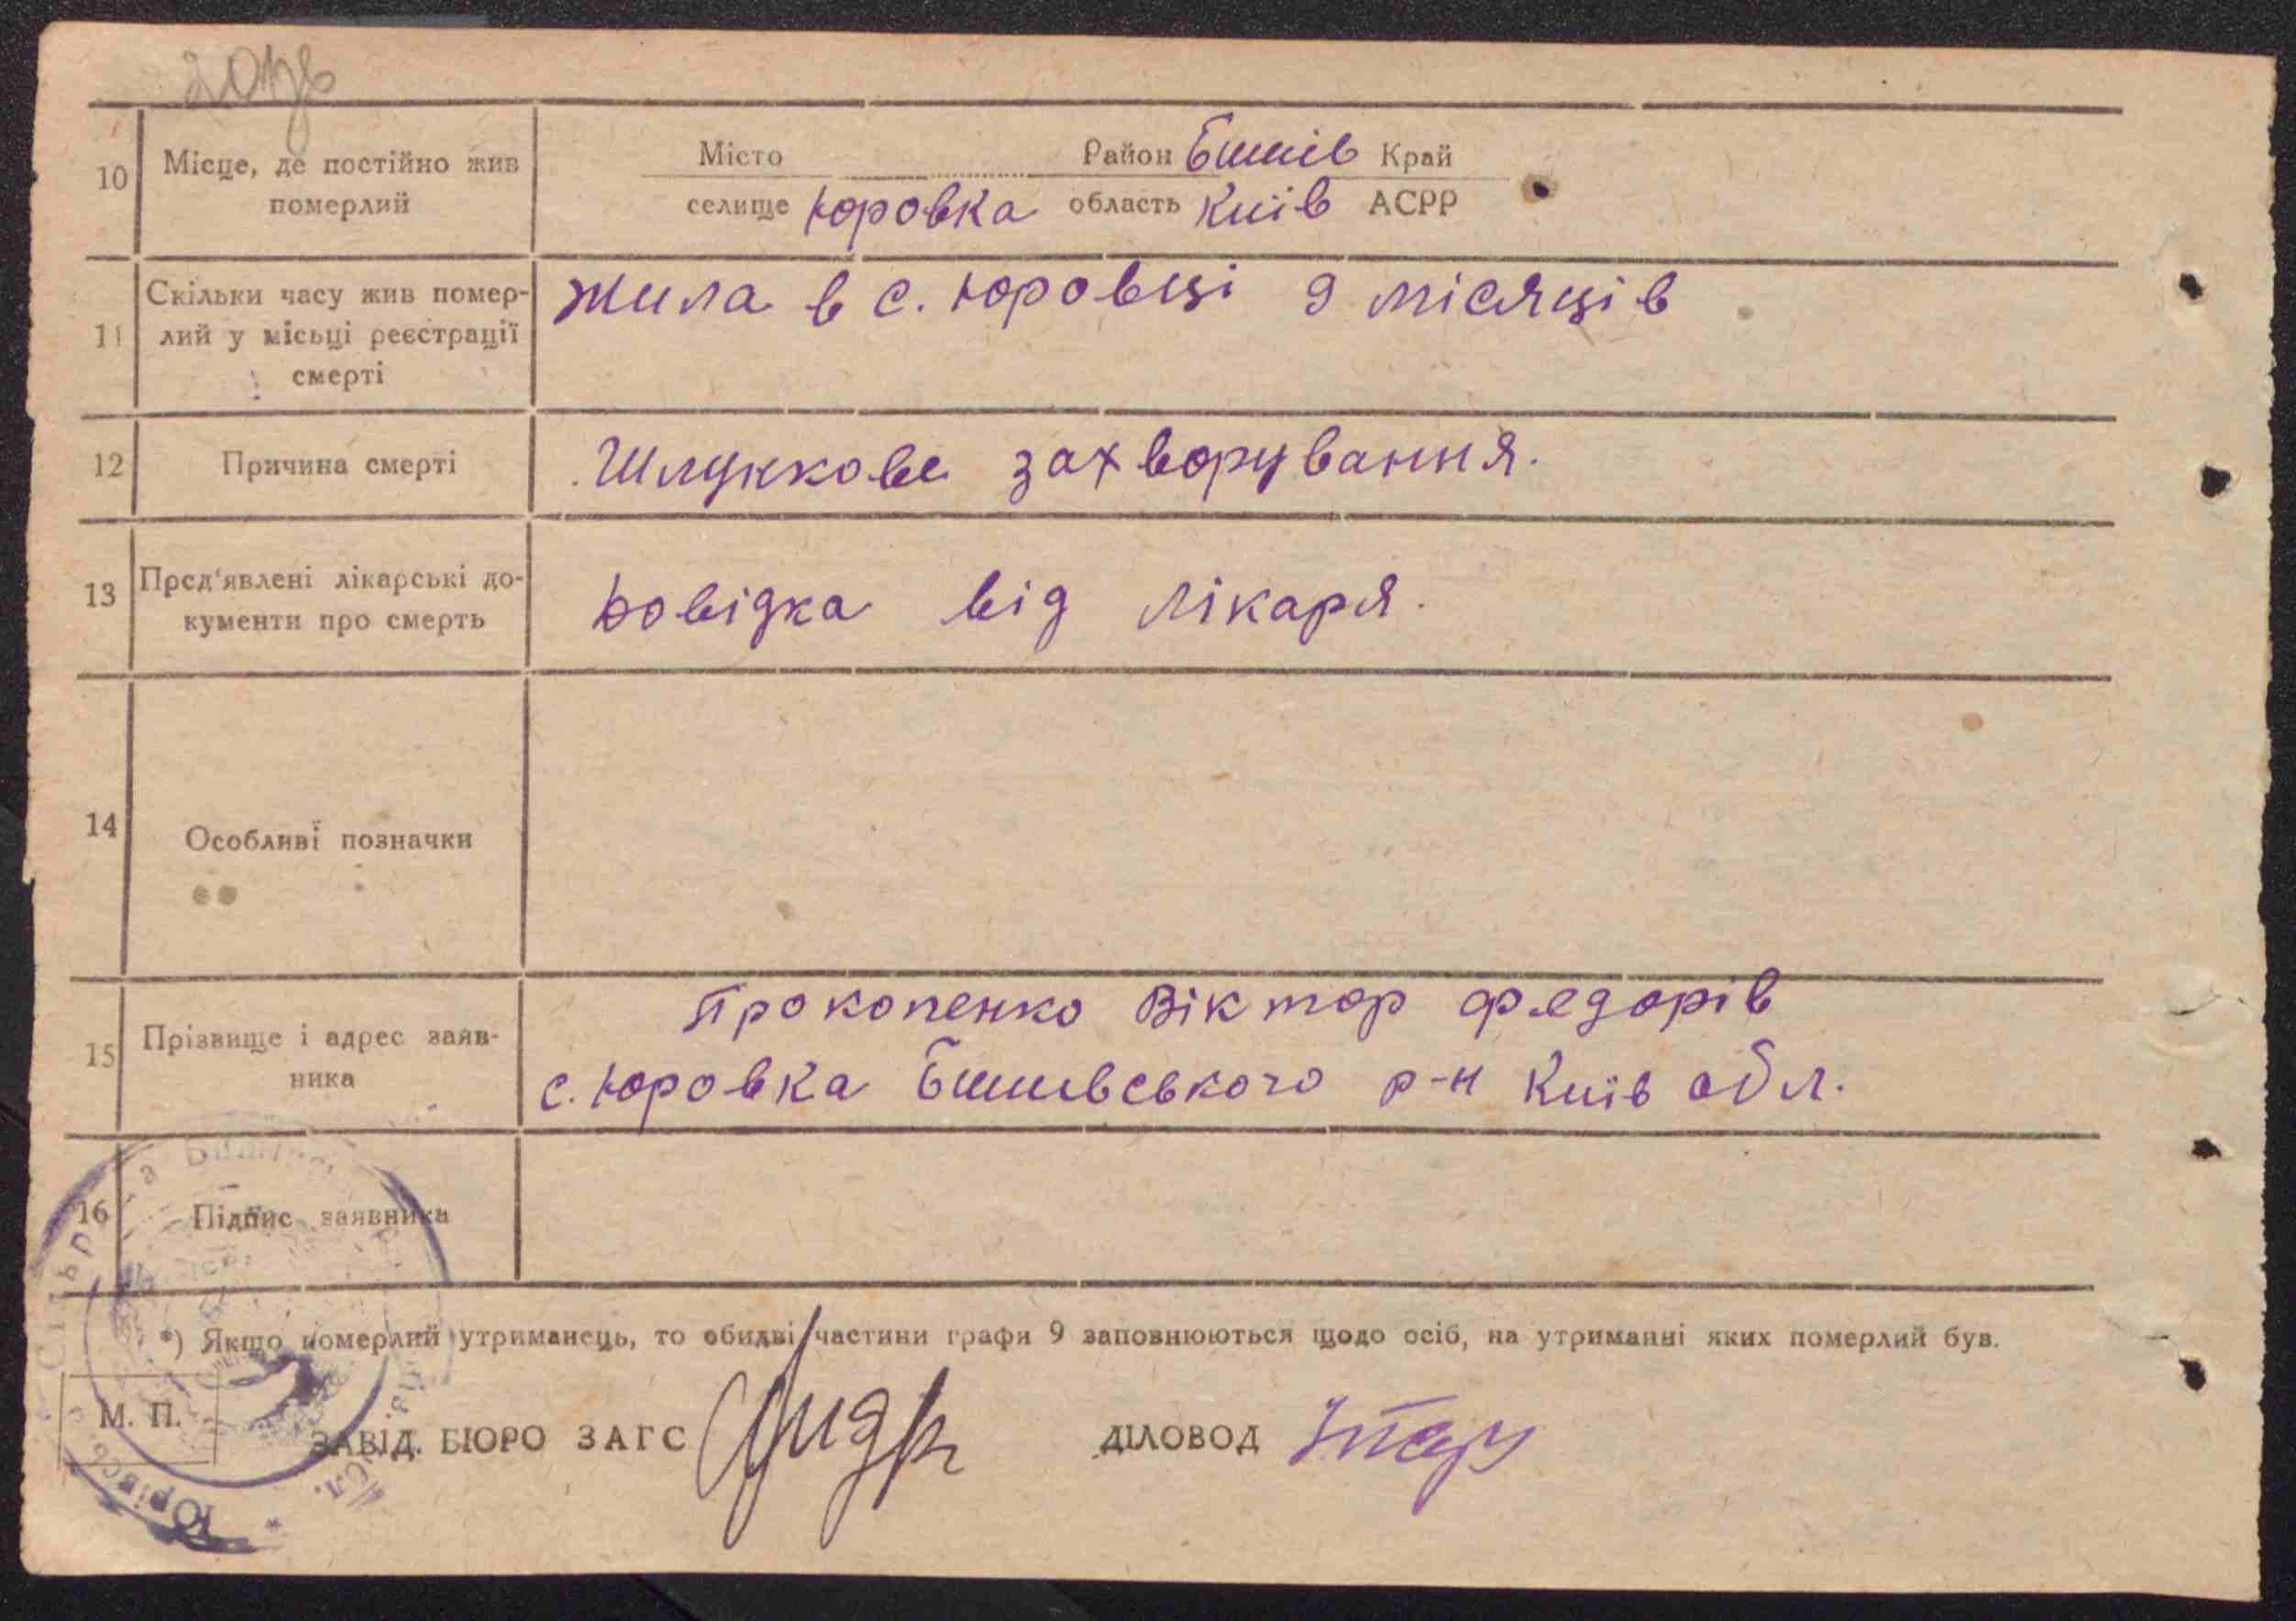 10 Місце, де постійно жив померлий
Місто Район Бишів Край
селище Юровка область Київ АСРР
11 Скільки часу жив помер-
лий у місьці реєстрації
смерті
Жила в с. Юровці 9 місяців
12 Причина смерті
Шлункове захворування.
13 Пред'явлені лікарські до-
кументи про смерть
Довідка від лікаря.
14 Особливі позначки
15 Прізвище і адрес заяв-
ника
Прокопенко Віктор Федорів
с. Юровка Бишивського р-н Київ обл.
16 Підпис заявника
*) Якщо померлий утриманець, то обидві частини графи 9 заповнюються щодо осіб, на утриманні яких померлий був.
М. П.
ЗАВІД. БЮРО ЗАГС ДІЛОВОД